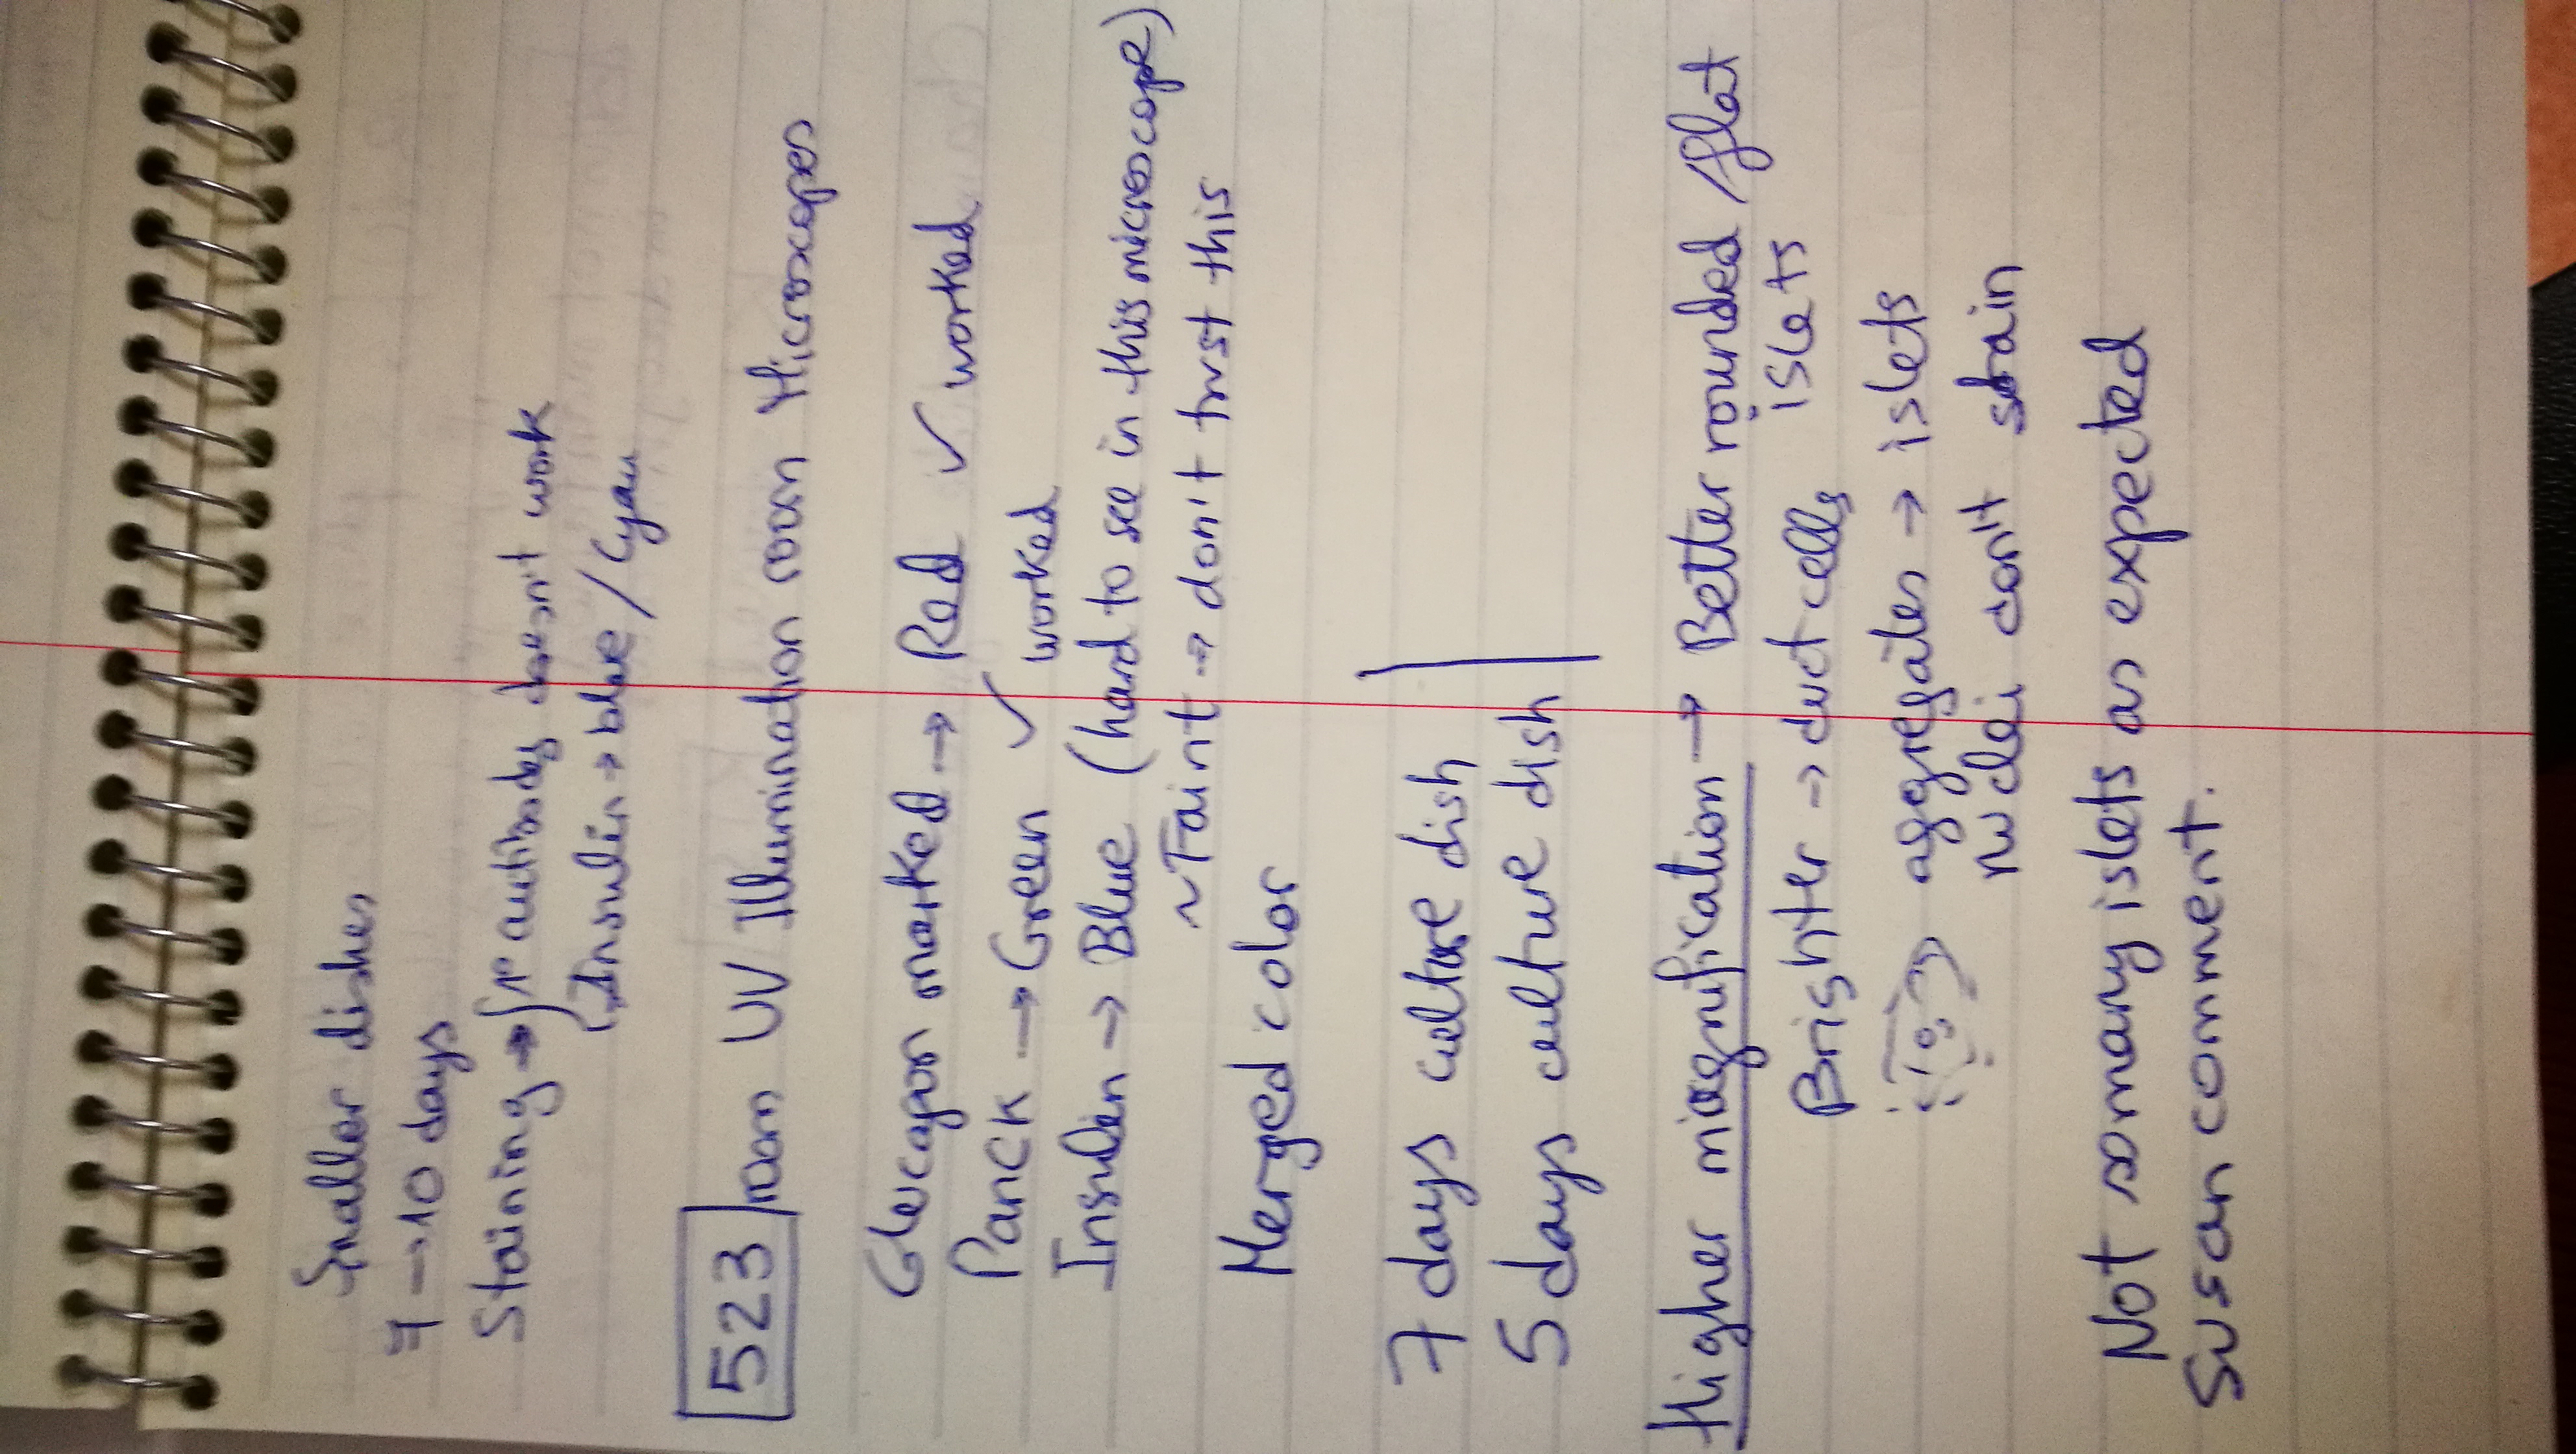 Smaller dishes
7 → 10 days
Staining → 1º antibody doesn't work
Insulin → blue / Cyan
523 room UV Illumination room Microscopes
Glucagon marked → Red ✓ worked
Panck → Green ✓ worked
Insulin → Blue (hard to see in this microscope)
~ Faint → don't trust this
Merged color
7 days culture dish
5 days culture dish
Higher miagnification → Better rounded / flat islets
Brighter → duct cells
aggregates → islets
nuclei don't stain
Not so many islets as expected
Susan comment.